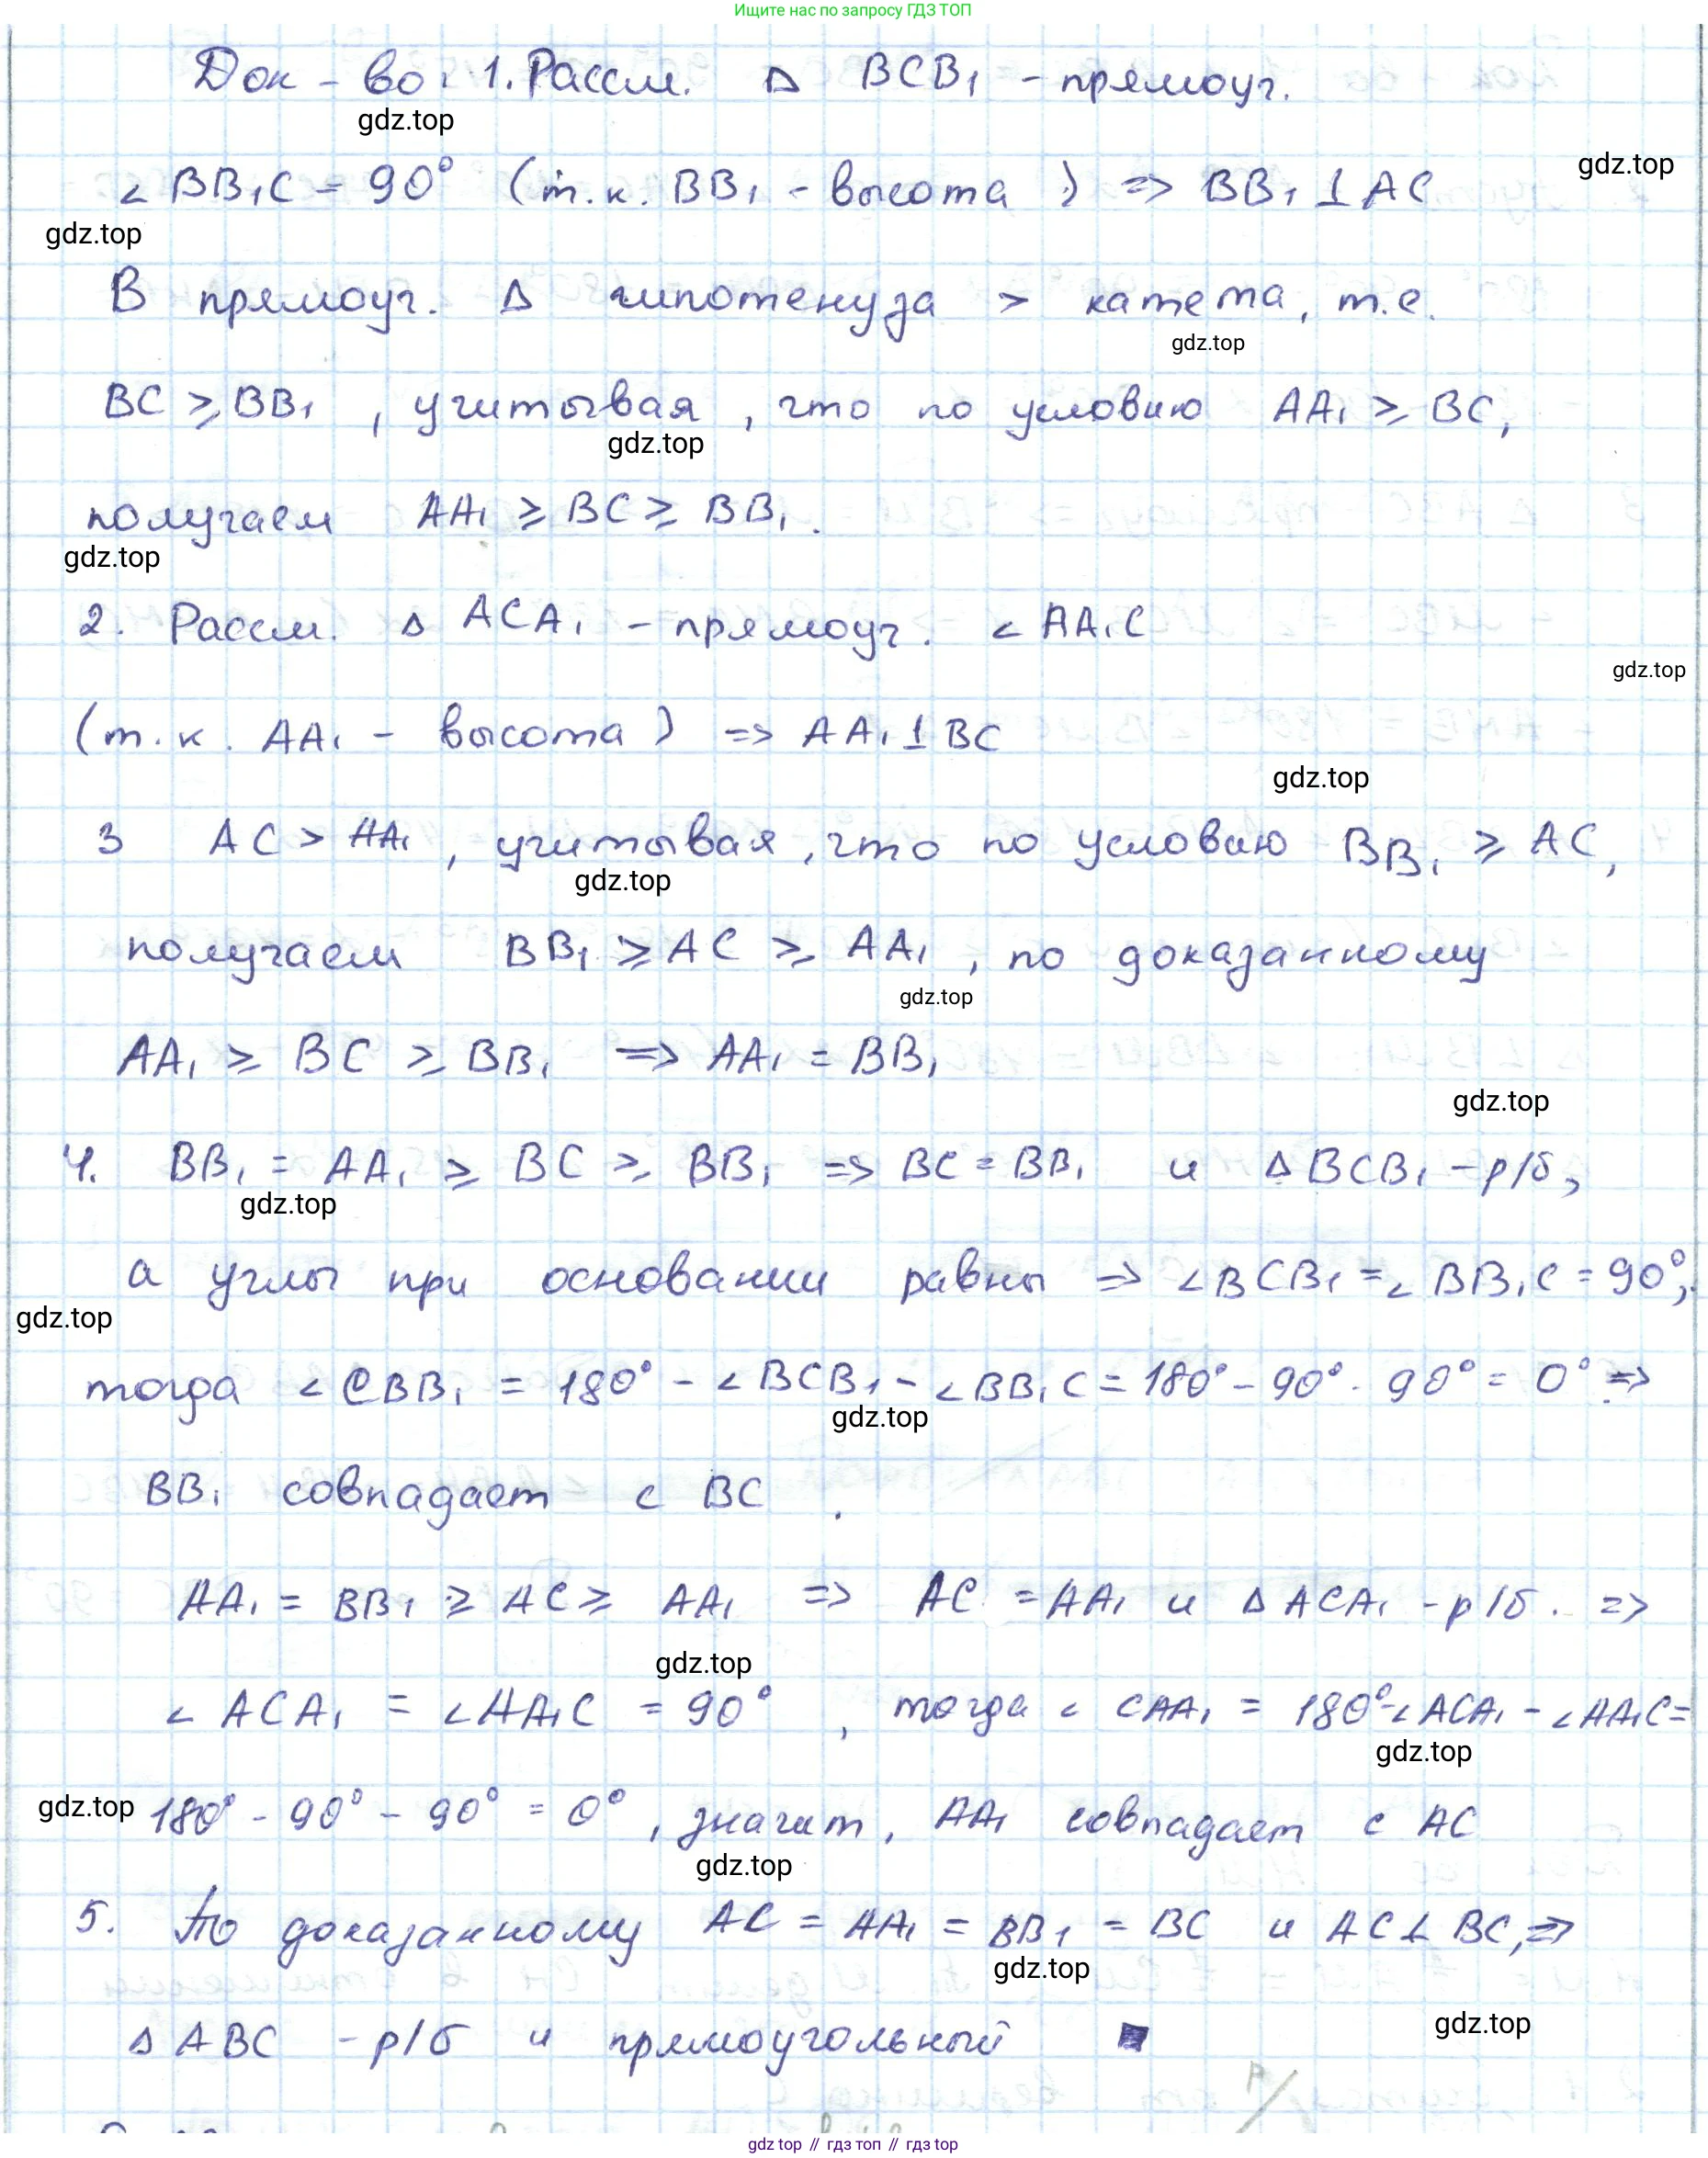 Ищите нас по запросу ГДЗ ТОП
Док - во: 1. Рассм. Δ BCB₁ - прямоуг.
gdz.top
gdz.top
∠ BB₁C = 90° (т.к. BB₁ - высота) => BB₁ ⊥ AC
gdz.top
В прямоуг. Δ гипотенуза > катета, т.е.
gdz.top
BC ⩾ BB₁, учитывая, что по условию AA₁ ⩾ BC,
gdz.top
получаем AA₁ ⩾ BC ⩾ BB₁.
gdz.top
2. Рассм. Δ ACA₁ - прямоуг. ∠ AA₁C
gdz.top
(т.к. AA₁ - высота) => AA₁ ⊥ BC
gdz.top
3 AC > AA₁, учитывая, что по условию BB₁ ⩾ AC,
gdz.top
получаем BB₁ ⩾ AC ⩾ AA₁, по доказанному
gdz.top
AA₁ ⩾ BC ⩾ BB₁ => AA₁ = BB₁
gdz.top
4. BB₁ = AA₁ ⩾ BC ⩾ BB₁ => BC = BB₁ и Δ BCB₁ - р/б,
gdz.top
а углы при основании равны => ∠BCB₁ = ∠BB₁C = 90°,
gdz.top
тогда ∠ CBB₁ = 180° - ∠BCB₁ - ∠BB₁C = 180° - 90° - 90° = 0° =>
gdz.top
BB₁ совпадает с BC.
AA₁ = BB₁ ⩾ AC ⩾ AA₁ => AC = AA₁ и Δ ACA₁ - р/б. =>
gdz.top
∠ ACA₁ = ∠AA₁C = 90°, тогда ∠ CAA₁ = 180° - ∠ACA₁ - ∠AA₁C =
gdz.top
gdz.top
180° - 90° - 90° = 0°, значит, AA₁ совпадает с AC
gdz.top
5. По доказанному AC = AA₁ = BB₁ = BC и AC ⊥ BC, =>
gdz.top
gdz.top
Δ ABC - р/б и прямоугольный
gdz top // гдз топ // gdz top